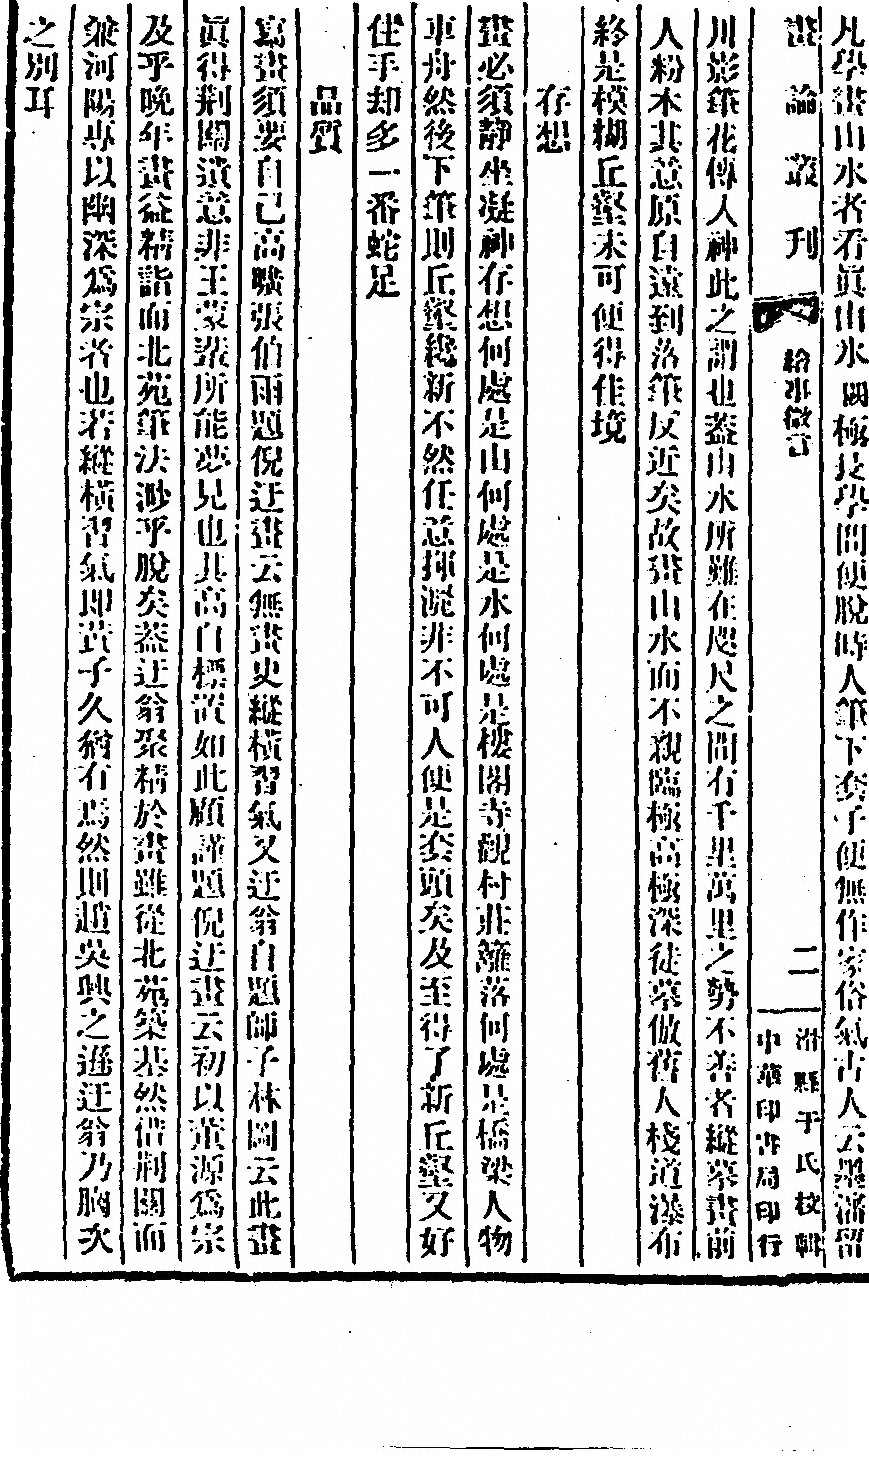 凡學畫山水者看眞山水圖極長學問便脫時人筆下套子便無作家俗氣古人云墨瀋留
畫論叢刊
繪事微言
二
滑縣于氏校輯
中華印書局印行
川影筆花傳人神此之謂也蓋山水所難在咫尺之間有千里萬里之勢不善者縱摹畫前
人粉本其意原自遠到落筆反近矣故畫山水而不親臨極高極深徒摹倣舊人棧道瀑布
終是模糊丘壑未可便得佳境
存想
畫必須靜坐凝神存想何處是山何處是水何處是樓閣寺觀村莊籬落何處是橋梁人物
車舟然後下筆則丘壑纔新不然任意揮灑非不可人便是套頭矣及至得了新丘壑又好
住手却多一番蛇足
品質
寫畫須要自己高曠張伯雨題倪迂畫云無畫史縱橫習氣又迂翁自題師子林圖云此畫
眞得荆關遺意非王蒙輩所能夢見也其高自標置如此顧謹題倪迂畫云初以董源爲宗
及乎晚年畫益精詣而北苑筆法渺乎脫矣蓋迂翁聚精於畫雖從北苑築基然借荆關而
兼河陽專以幽深爲宗者也若縱橫習氣即黃子久猶有焉然則趙吳興之遜迂翁乃胸次
之別耳